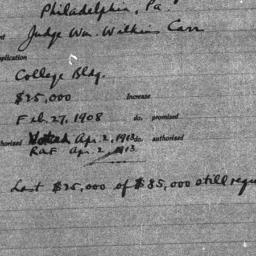 Philadelphia, Pa.
nt Judge Wm. Wilkins Carr
plication
College Bldg.
$25,000 Increase
Feb. 27, 1908 do. promised
horized Apr. 2, 1913 do. authorized
RAF Apr. 2, 1913
Last $25,000 of $85,000 still requ